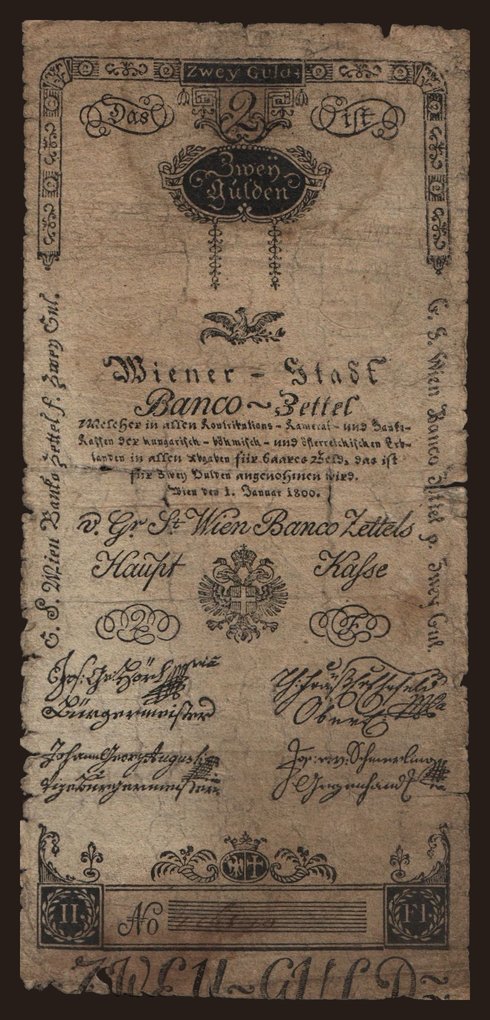 Zwey Guld:
Das
2
ist
Zwey
Gulden
Wiener - Stadt
Banco ~ Zettel
Welcher in allen Kontributions - Kameral - und Banko-
Kassen der hungarisch - böhmisch - und österreichischen Erb-
landen in allen Abgaben für baares Geld, das ist
für Zwey Gulden angenohmen wird.
Wien den 1. Januar 1800.
v. Gr. St. Wien Banco Zettels
Haupt Kasse
Wien Banko Zettel f. Zwey Gul.
Wien Banco Zettel p. Zwey Gul.
Bürgermeister
Johann Georg August
Vizebürgermeister
II
Fl
No
ZWEY ~ GULD ~